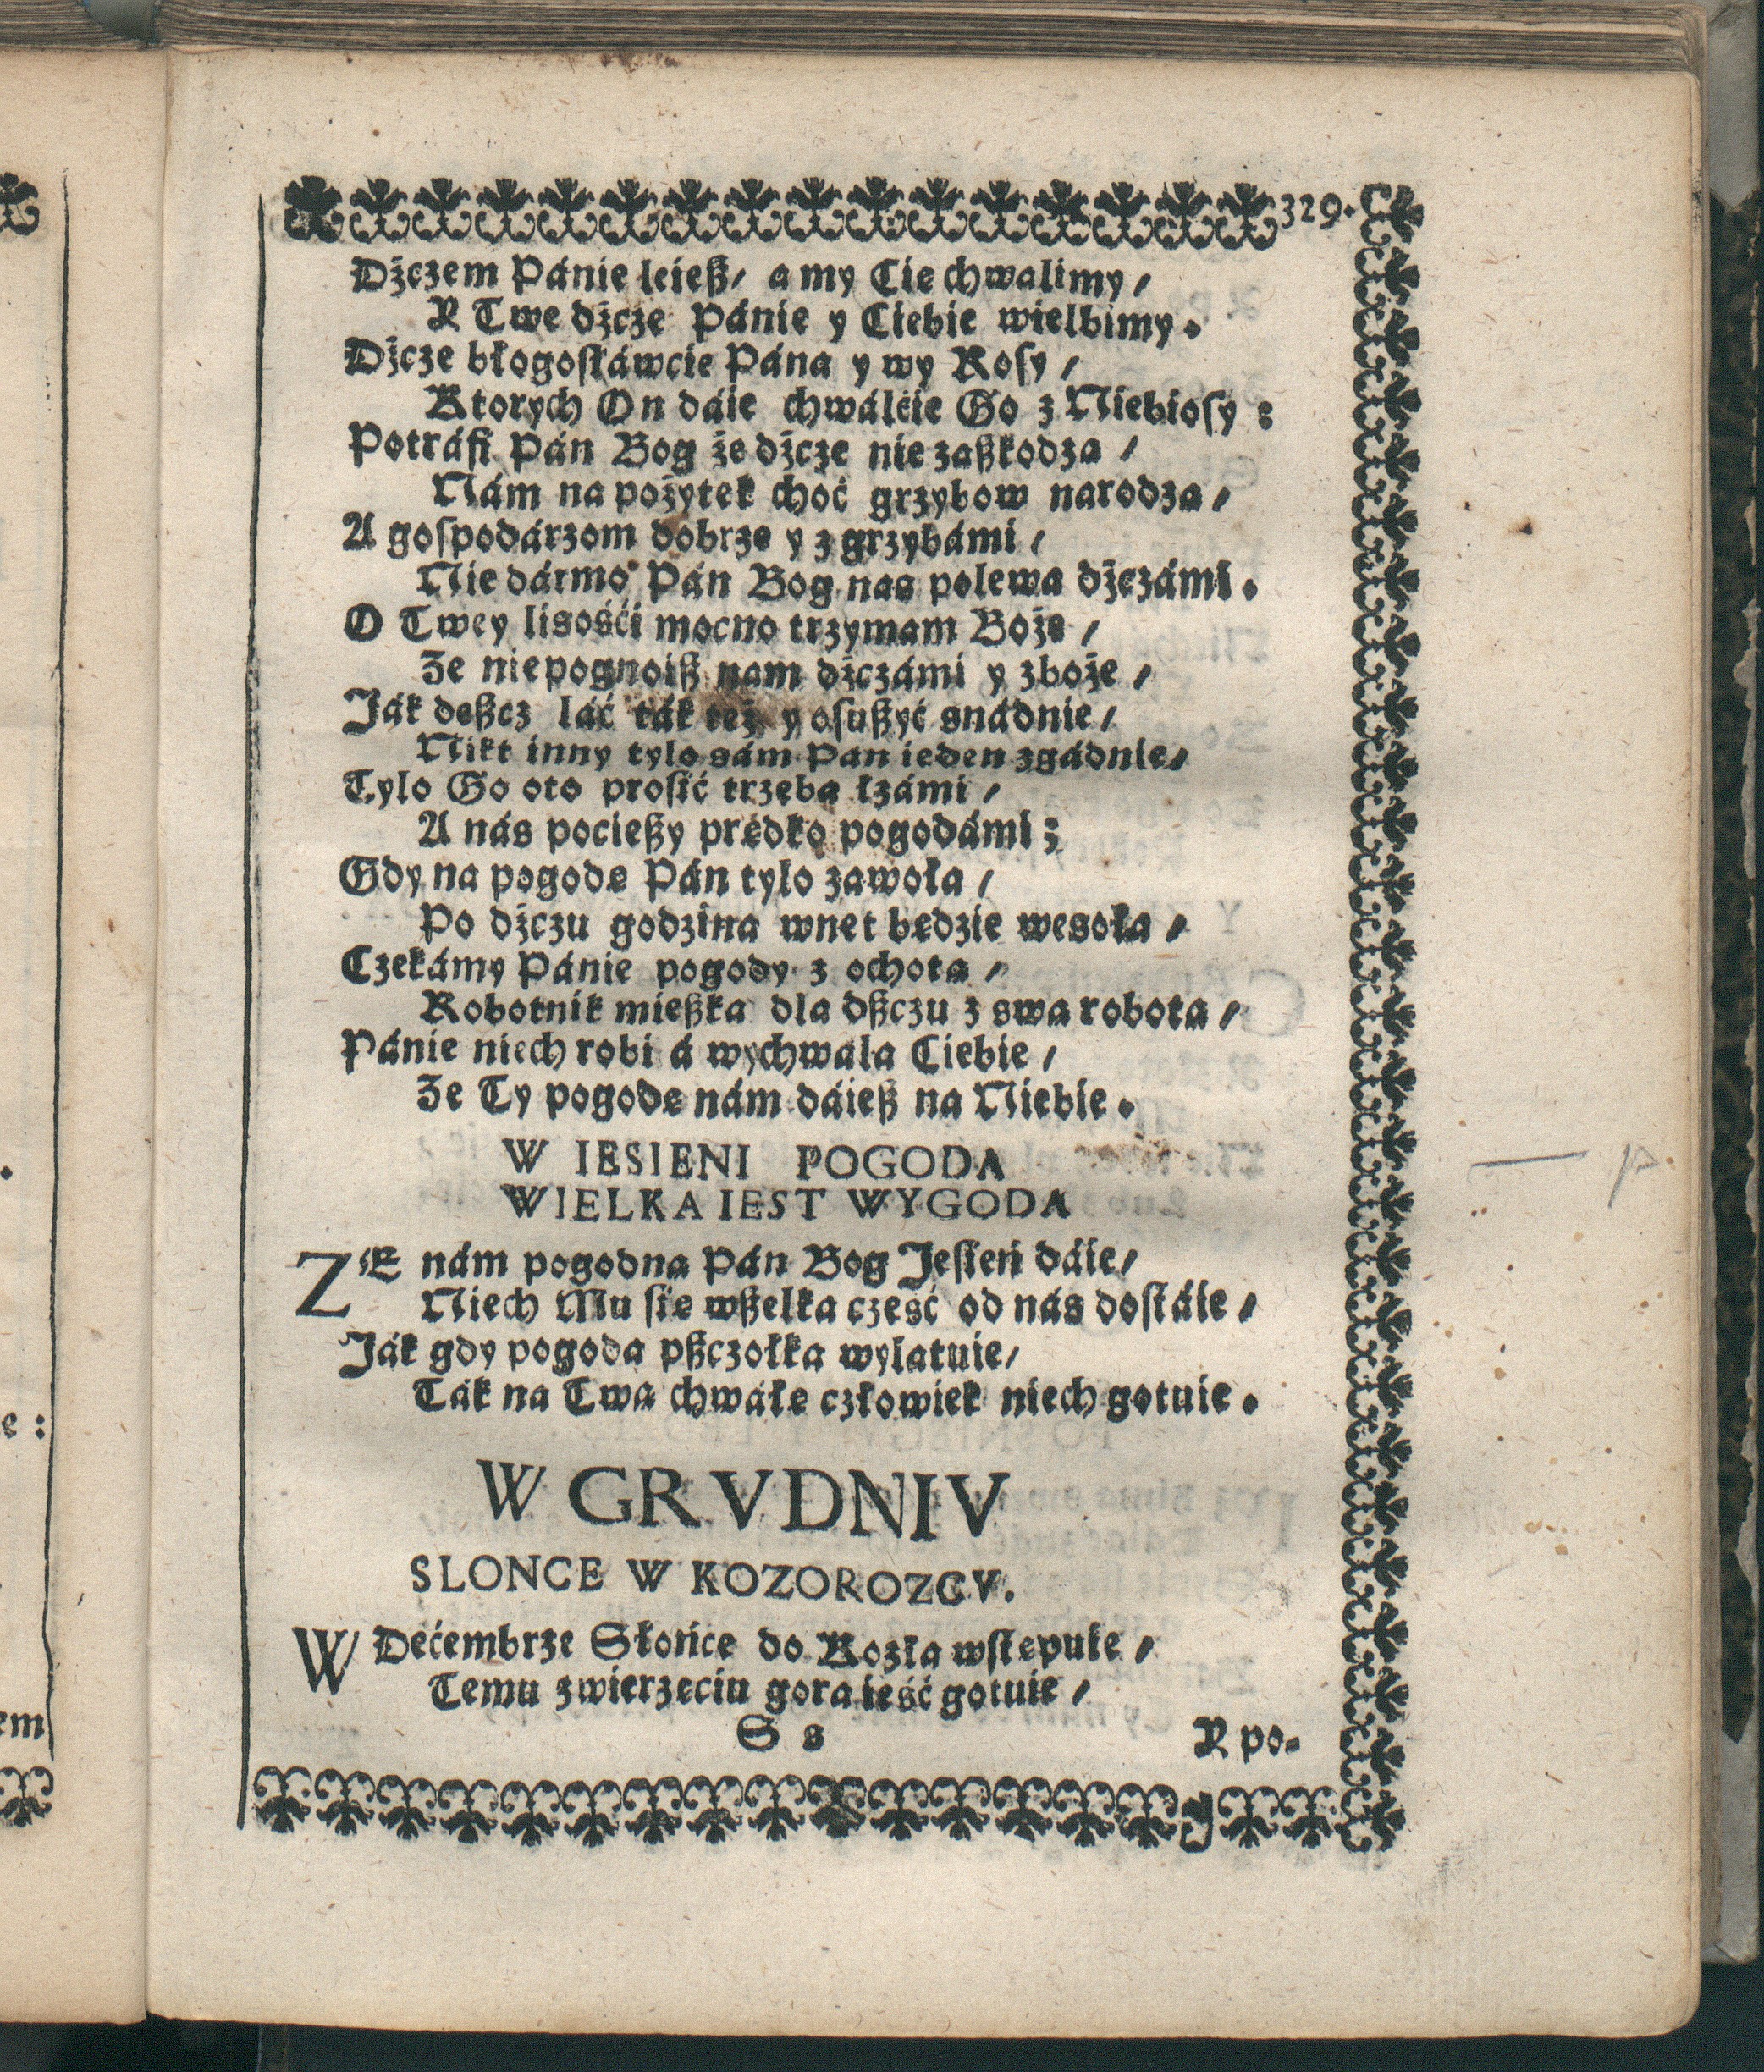 329.
Dżczem Pánie leieß/ a my Cie chwalimy/
Y Twe dżcze Pánie y Ciebie wielbimy.
Dżcze błogosłáwcie Pána y wy Rosy/
Ktorych On dáie chwálcie Go z Niebiosy:
Potráfi Pán Bog że dżcze nie zaßkodza/
Nám na pożytek choć grzybow narodza/
A gospodárzom dobrze y z grzybámi/
Nie dármo Pán Bog nas polewa dżczámi.
O Twey lisośći mocno trzymam Boże/
Ze niepognoiß nam dżczámi y zboże/
Ják deßcz láć ták też y osußyć snádnie/
Nikt inny tylo sám Pan ieden zgádnie/
Tylo Go oto prosić trzeba łzámi/
A nás pocießy predko pogodámi;
Gdy na pogode Pán tylo zawoła/
Po dżczu godzina wnet bedzie wesoła/
Czekámy Pánie pogody z ochota/
Robotnik mießka dla dßczu z swa robota/
Pánie niech robi á wychwala Ciebie/
Ze Ty pogode nám dáieß na Niebie.
W IESIENI POGODA
WIELKA IEST WYGODA
ZE nám pogodna Pán Bog Jesień dáie/
Niech Mu sie wßelka cześć od nás dostáie/
Ják gdy pogoda pßczołka wylatuie/
Ták na Twa chwáłe człowiek niech gotuie.
W GRVDNIV
SLONCE W KOZOROZCV.
W Dećembrze Słońce do Kozła wstepuie/
Temu zwierzeciu gora ieść gotuie/
S s
Y po-
e:
em